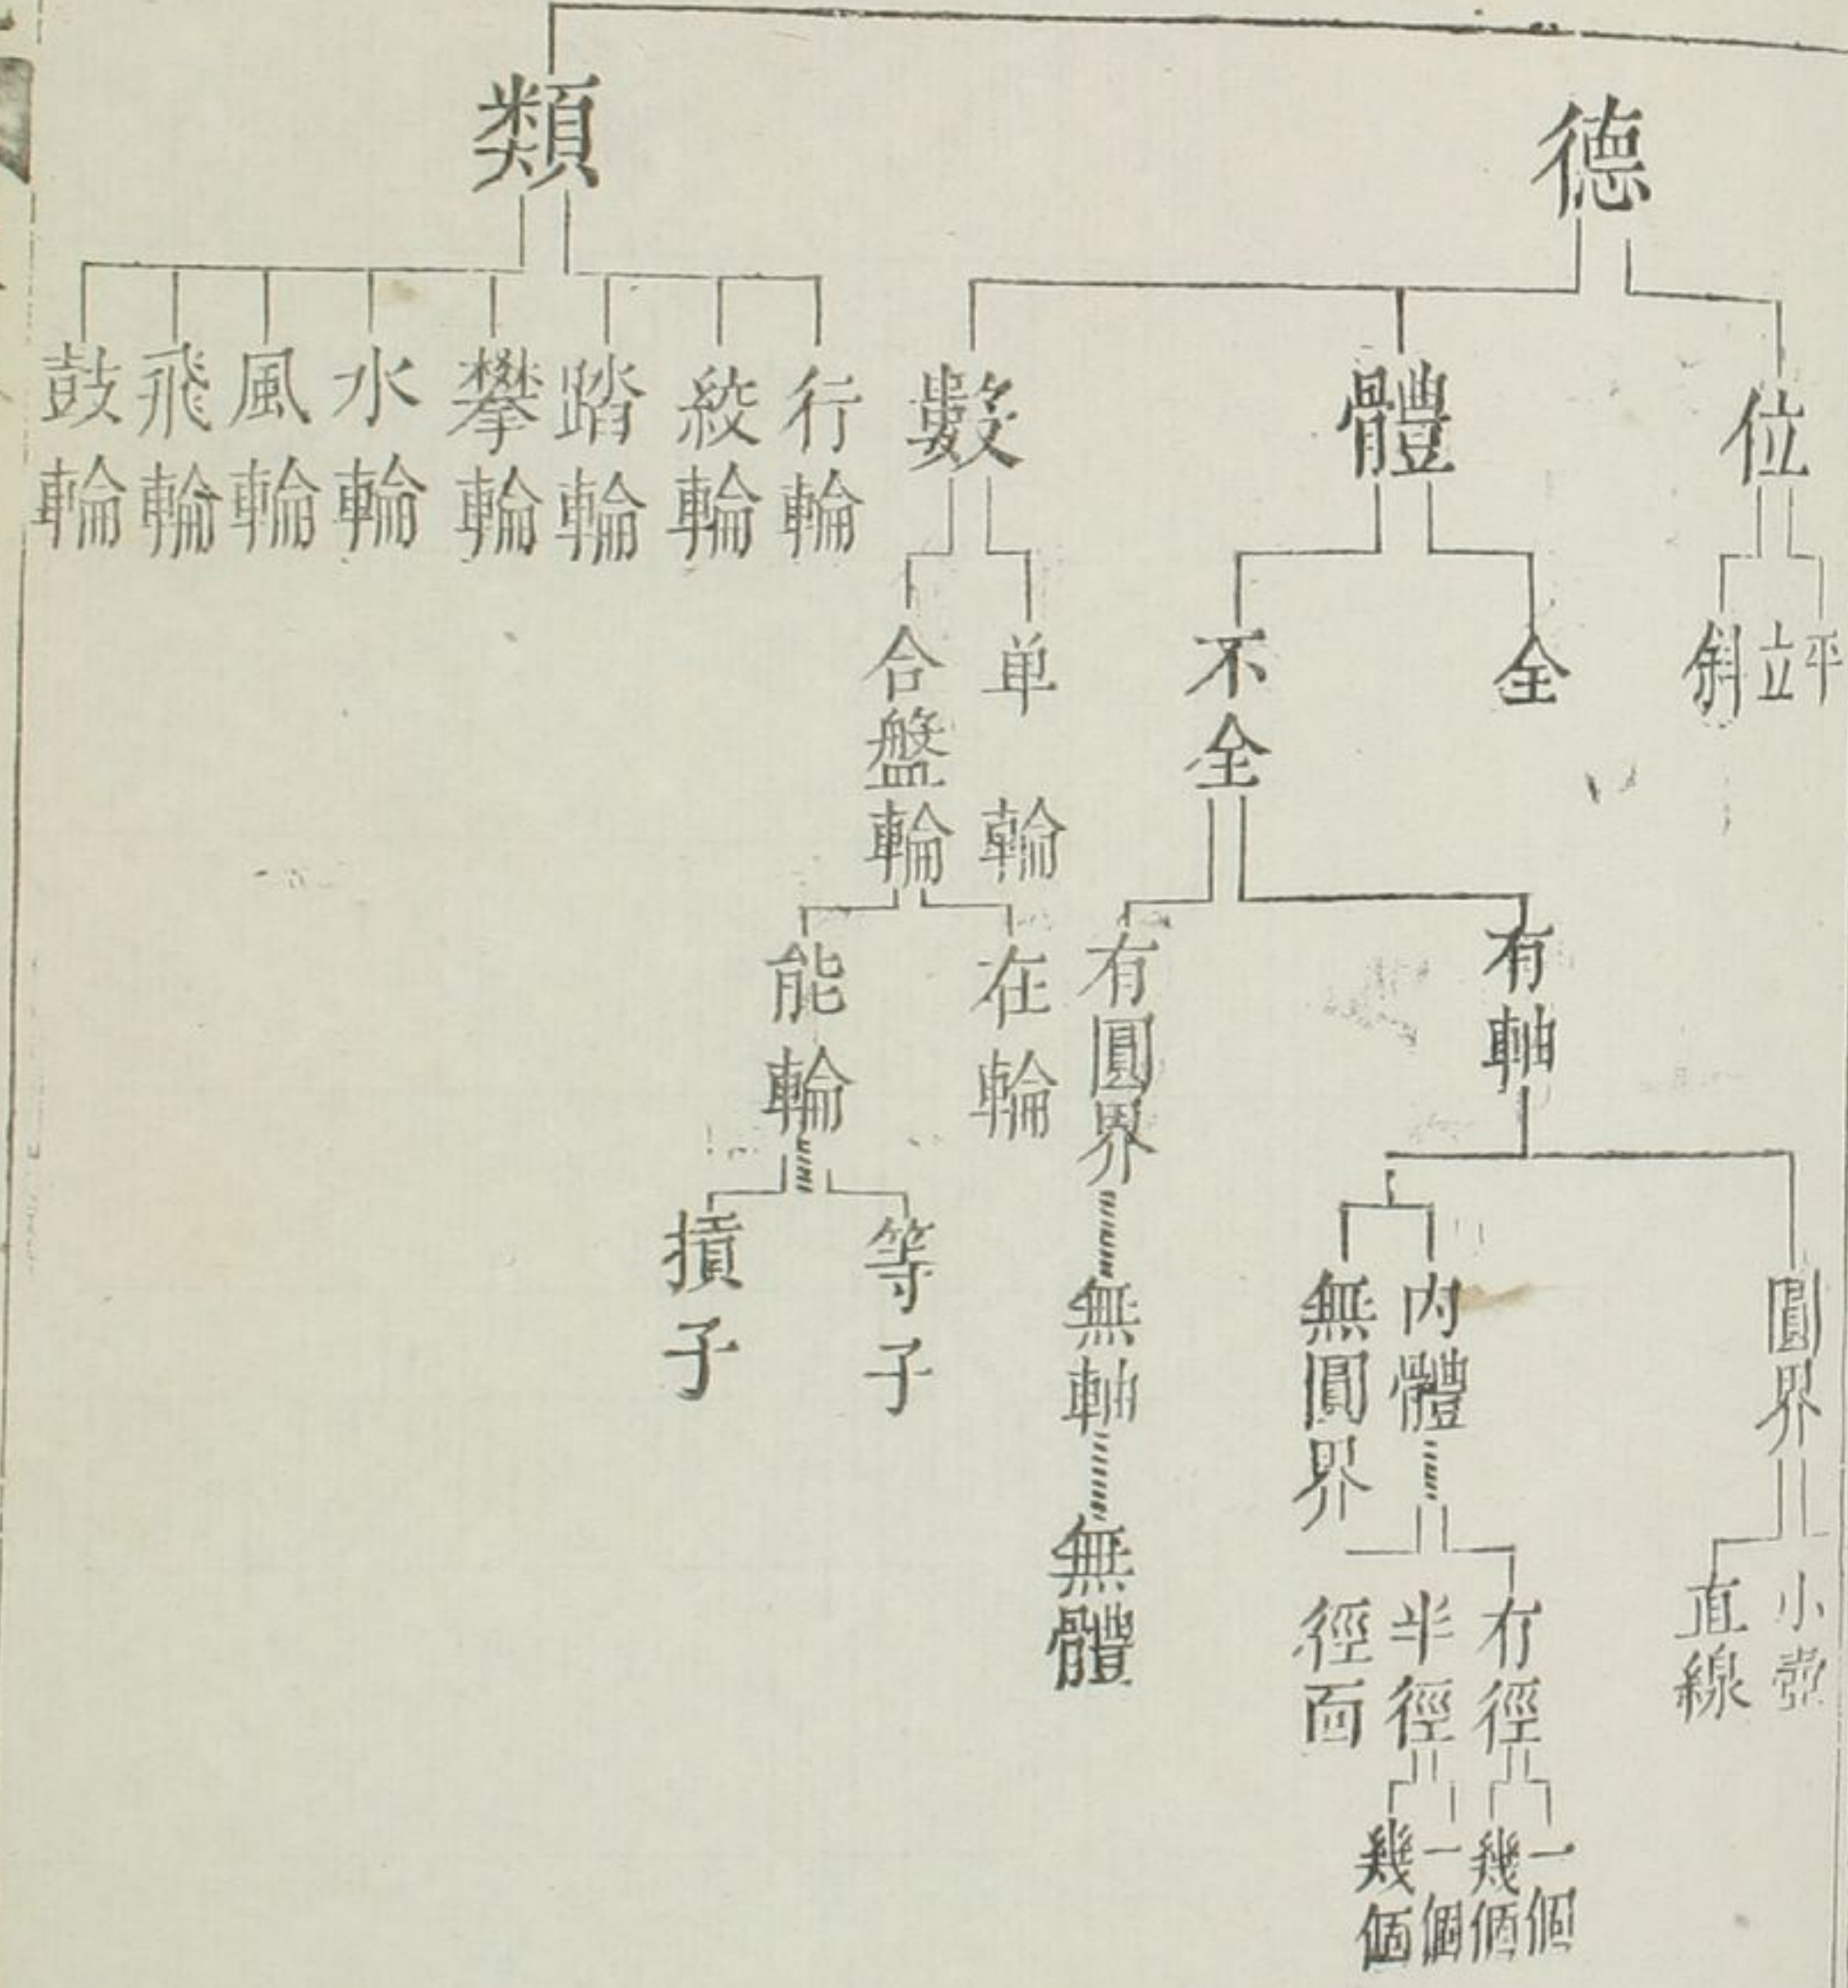 德
位
平
立
斜
體
全
不全
有軸
圓界
小壺
直線
內體
有徑
一個
幾個
半徑
一個
幾個
徑面
無圓界
有圓界
無軸
無體
數
单輪
合盤輪
在輪
能輪
等子
摃子
類
行輪
絞輪
踏輪
攀輪
水輪
風輪
飛輪
鼓輪